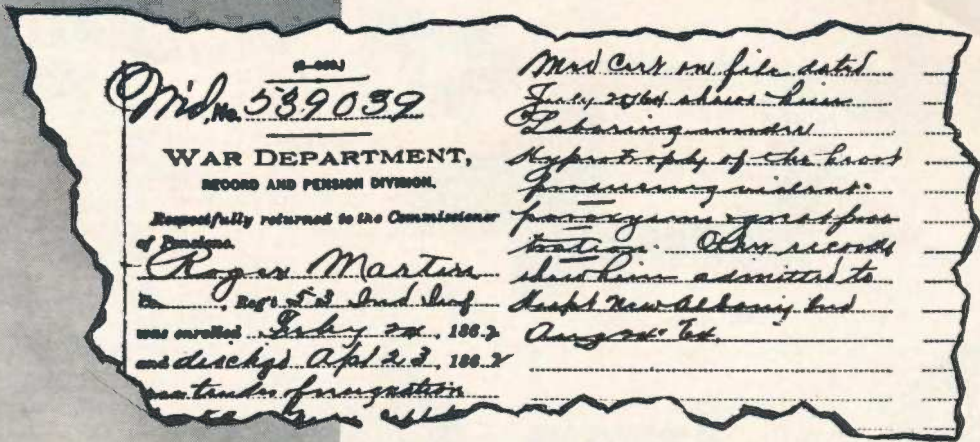 Mid, No. 539039
WAR DEPARTMENT,
RECORD AND PENSION DIVISION.
Respectfully returned to the Commissioner
of Pensions.
Roger Martin
Co , Reg't 53 Ind Inf
was enrolled Feby , 1862
and dischgd Apl 23, 1862
tender of resignation
Med Cert on file dated
July shows him
Laboring under
Hypertrophy of the heart
producing violent
paroxysms & great pros
tration. Other records
show him admitted to
Hospt New Albany Ind
Aug